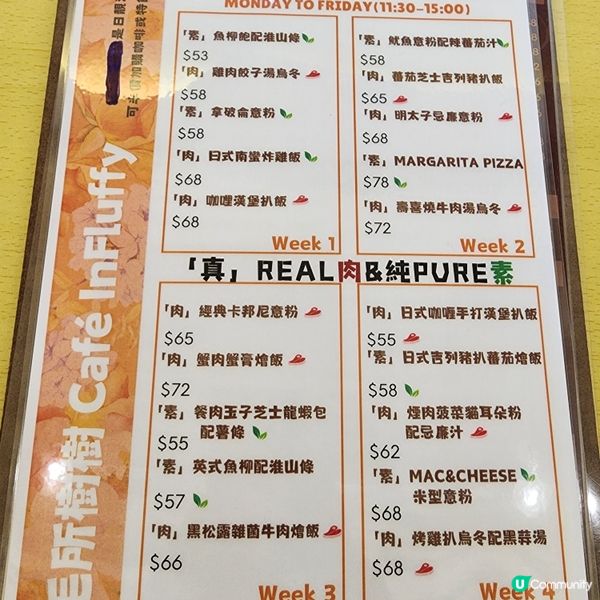 MONDAY TO FRIDAY(11:30-15:00)
「素」魚柳飽配淮山條
$53
「肉」雞肉餃子湯烏冬
$58
「素」拿破侖意粉
$58
「肉」日式南蠻炸雞飯
$68
「肉」咖喱漢堡扒飯
$68
Week 1
「素」魷魚意粉配辣蕃茄汁
$58
「肉」蕃茄芝士吉列豬扒飯
$65
「肉」明太子忌廉意粉
$68
「素」MARGARITA PIZZA
$78
「肉」壽喜燒牛肉湯烏冬
$72
Week 2
「真」REAL肉&純PURE素
「肉」經典卡邦尼意粉
$65
「肉」蟹肉蟹膏燴飯
$72
「素」餐肉玉子芝士龍蝦包
配薯條
$55
「素」英式魚柳配淮山條
$57
「肉」黑松露雜菌牛肉燴飯
$66
Week 3
「肉」日式咖喱手打漢堡扒飯
$55
「素」日式吉列豬扒蕃茄燴飯
$58
「肉」煙肉菠菜貓耳朵粉
配忌廉汁
$62
「素」MAC&CHEESE
米型意粉
$68
「肉」烤雞扒烏冬配黑蒜湯
$68
Week 4
所樹樹 Café InFluffy
是日靚
加購咖啡或特
U Community